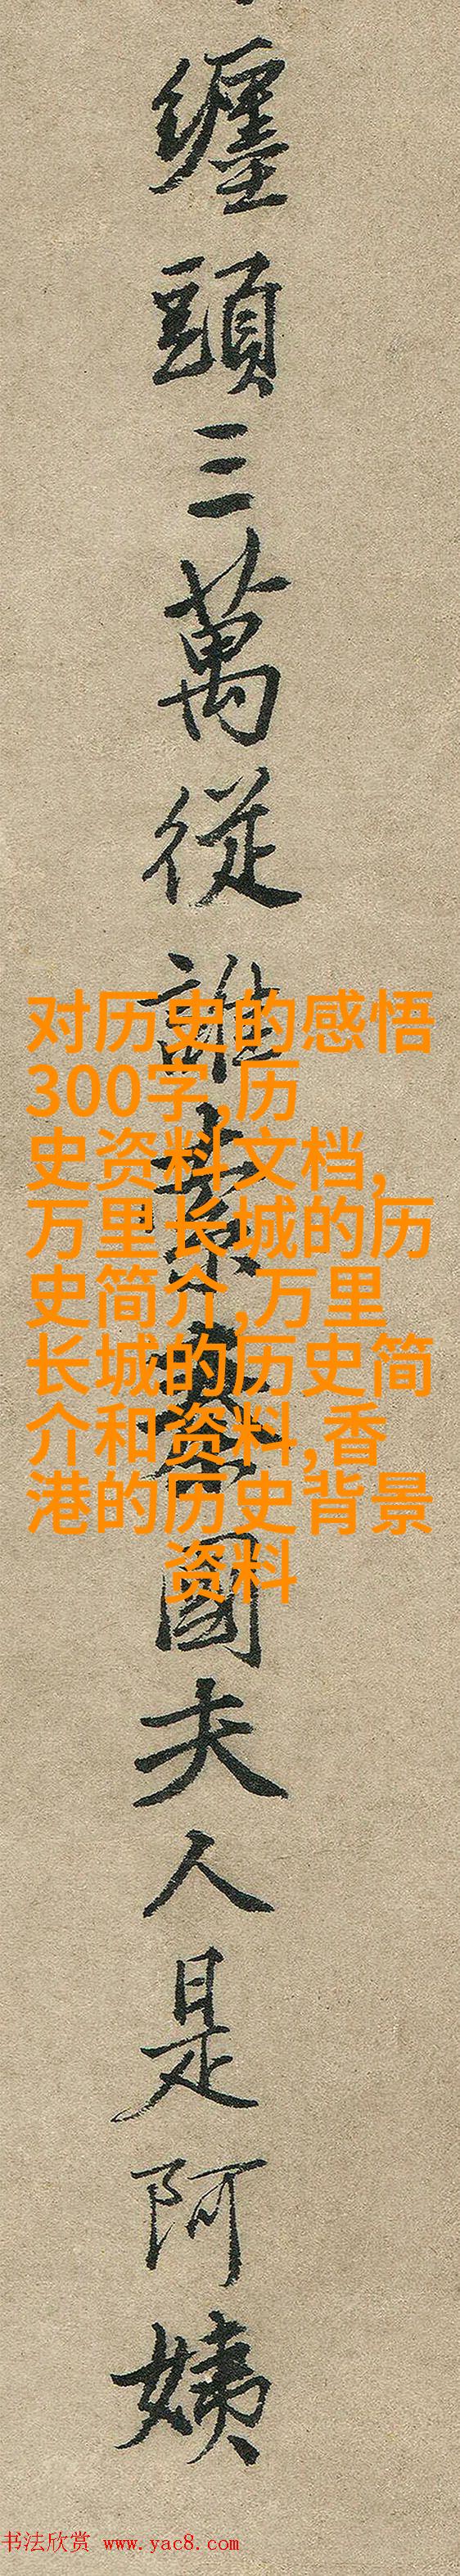 纏頭三萬從誰索秦國夫人是阿姨
对历史的感悟
300字,历
史资料文档,
万里长城的历
史简介,万里
长城的历史简
介和资料,香
港的历史背景
资料
书法欣赏 www.yac8.com